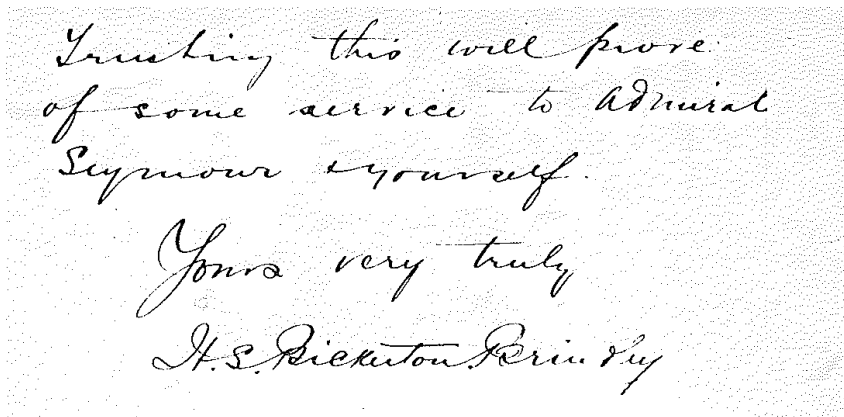 Trusting this will prove
of some service to Admiral
Seymour & yourself.
Yours very truly
H. S. Bickerton Brindley